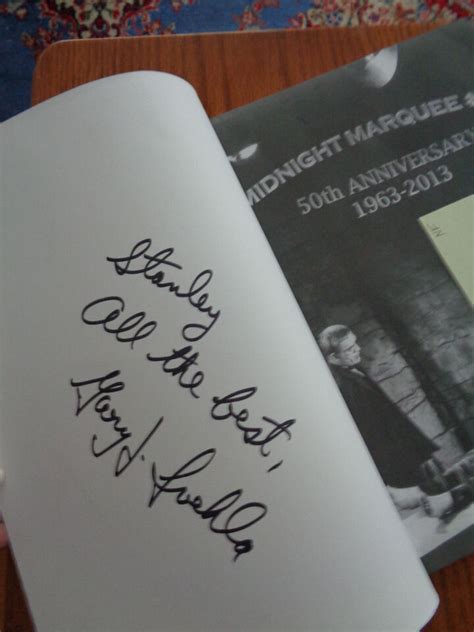 Stanley
All the best,
Gary J. Svehla
MIDNIGHT MARQUEE
50th ANNIVERSARY
1963-2013